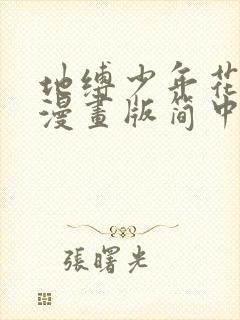 地缚少年花
漫畫版简中
張曙光